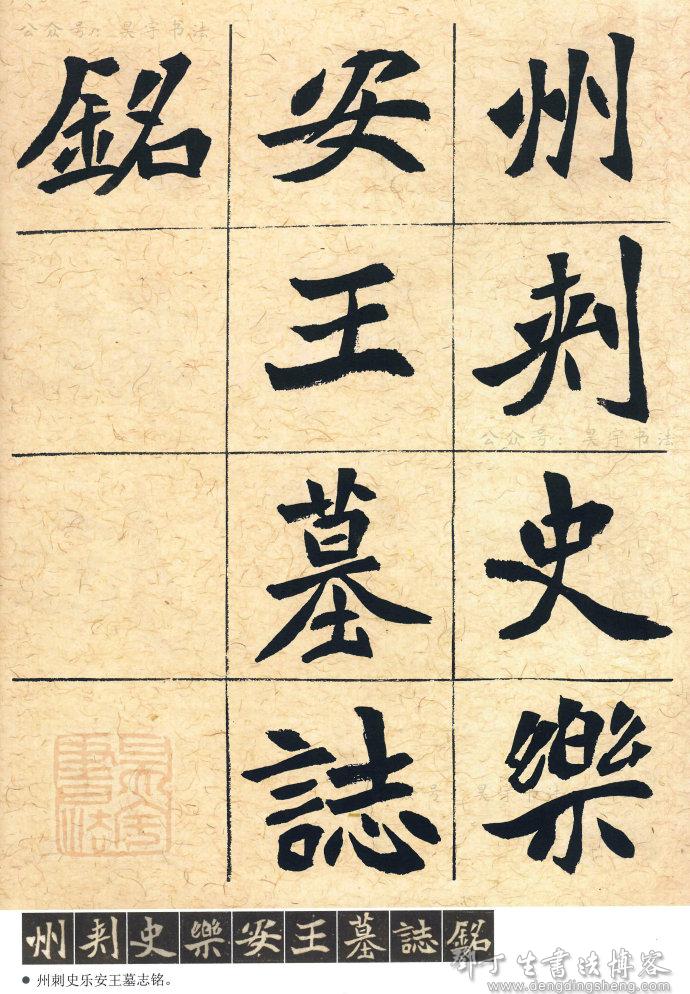 公众号：昊宇书法
州刺史樂
安王墓誌
銘
公众号：昊宇书法
号：昊宇书法
昊宇書法
州刺史樂安王墓誌銘
● 州刺史乐安王墓志铭。
邓丁生書法博客
www.dengdingsheng.com